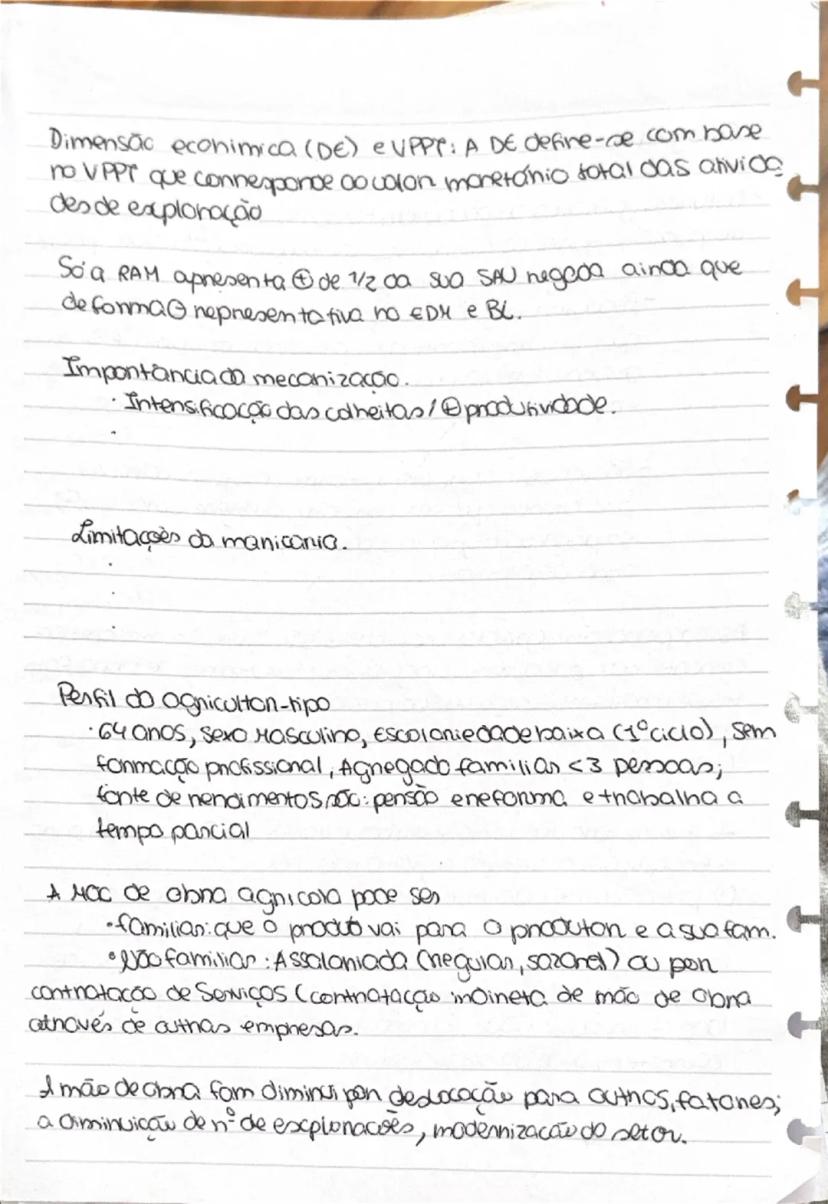 Dimensão econimica (DE) e VPPT: A DE define-se com base
no VPPT que corresponde ao valor monetário total das ativida
des de exploração
Só a RAM apresenta ⊕ de 1/2 da sua SAU regada ainda que
de forma ⊖ representativa no EDM e BL.
Importância da mecanização.
· Intensificação das colheitas / ⊕ produtividade.
·
Limitações da
·
·
·
Perfil do agricultor-tipo
· 64 anos, sexo Masculino, Escolariedade baixa (1º ciclo), sem
formação profissional, Agregado familiar <3 pessoas;
fonte de rendimentos são: pensão e reforma e trabalha a
tempo parcial
A MãO de obra agricola pode ser
· familiar: que o produto vai para o produtor e a sua fam.
· Não familiar: Assalariada (regular, sazonal) ou por
contratação de Serviços (contratação indireta de mão de obra
através de outras empresas.
A mão de obra fam diminui por deslocação para outros, fatores;
a diminuição de nº de explorações, modernização do setor.